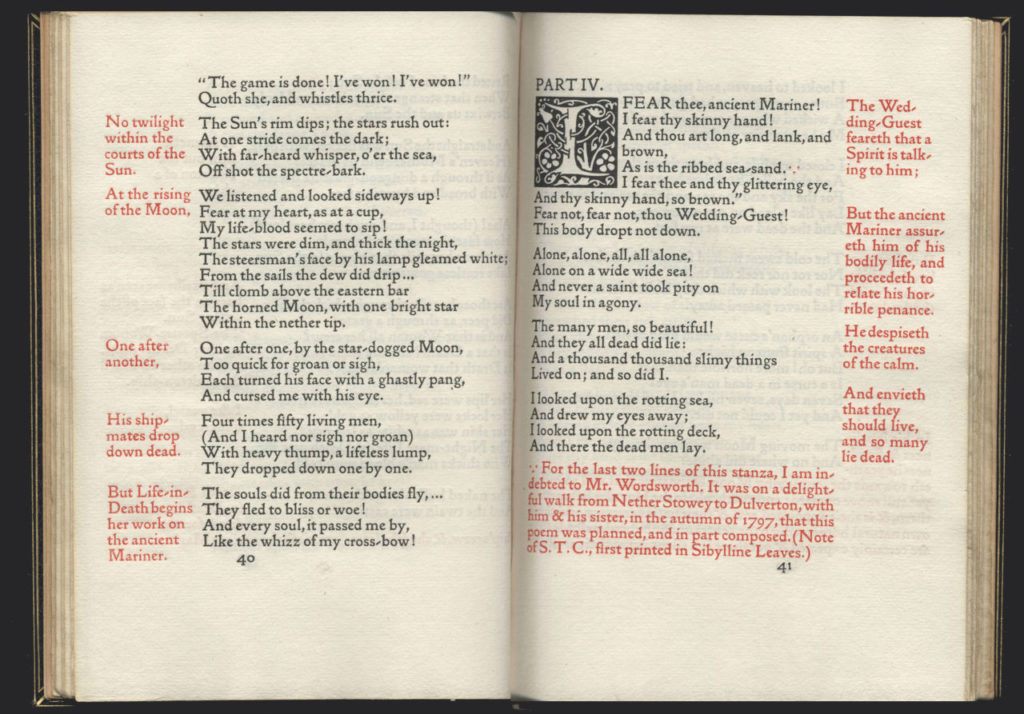 "The game is done! I've won! I've won!"
Quoth she, and whistles thrice.
No twilight
within the
courts of the
Sun.
The Sun's rim dips; the stars rush out:
At one stride comes the dark;
With far-heard whisper, o'er the sea,
Off shot the spectre-bark.
At the rising
of the Moon,
We listened and looked sideways up!
Fear at my heart, as at a cup,
My life-blood seemed to sip!
The stars were dim, and thick the night,
The steersman's face by his lamp gleamed white;
From the sails the dew did drip...
Till clomb above the eastern bar
The horned Moon, with one bright star
Within the nether tip.
One after
another,
One after one, by the star-dogged Moon,
Too quick for groan or sigh,
Each turned his face with a ghastly pang,
And cursed me with his eye.
His ship-
mates drop
down dead.
Four times fifty living men,
(And I heard nor sigh nor groan)
With heavy thump, a lifeless lump,
They dropped down one by one.
But Life-in-
Death begins
her work on
the ancient
Mariner.
The souls did from their bodies fly,...
They fled to bliss or woe!
And every soul, it passed me by,
Like the whizz of my cross-bow!
40
PART IV.
I FEAR thee, ancient Mariner!
I fear thy skinny hand!
And thou art long, and lank, and
brown,
As is the ribbed sea-sand. ∵
I fear thee and thy glittering eye,
And thy skinny hand, so brown."
The Wed-
ding-Guest
feareth that a
Spirit is talk-
ing to him;
Fear not, fear not, thou Wedding-Guest!
This body dropt not down.
Alone, alone, all, all alone,
Alone on a wide wide sea!
And never a saint took pity on
My soul in agony.
But the ancient
Mariner assur-
eth him of his
bodily life, and
proceedeth to
relate his hor-
rible penance.
The many men, so beautiful!
And they all dead did lie:
And a thousand thousand slimy things
Lived on; and so did I.
He despiseth
the creatures
of the calm.
I looked upon the rotting sea,
And drew my eyes away;
I looked upon the rotting deck,
And there the dead men lay.
And envieth
that they
should live,
and so many
lie dead.
∵ For the last two lines of this stanza, I am in-
debted to Mr. Wordsworth. It was on a delight-
ful walk from Nether Stowey to Dulverton, with
him & his sister, in the autumn of 1797, that this
poem was planned, and in part composed. (Note
of S. T. C., first printed in Sibylline Leaves.)
41